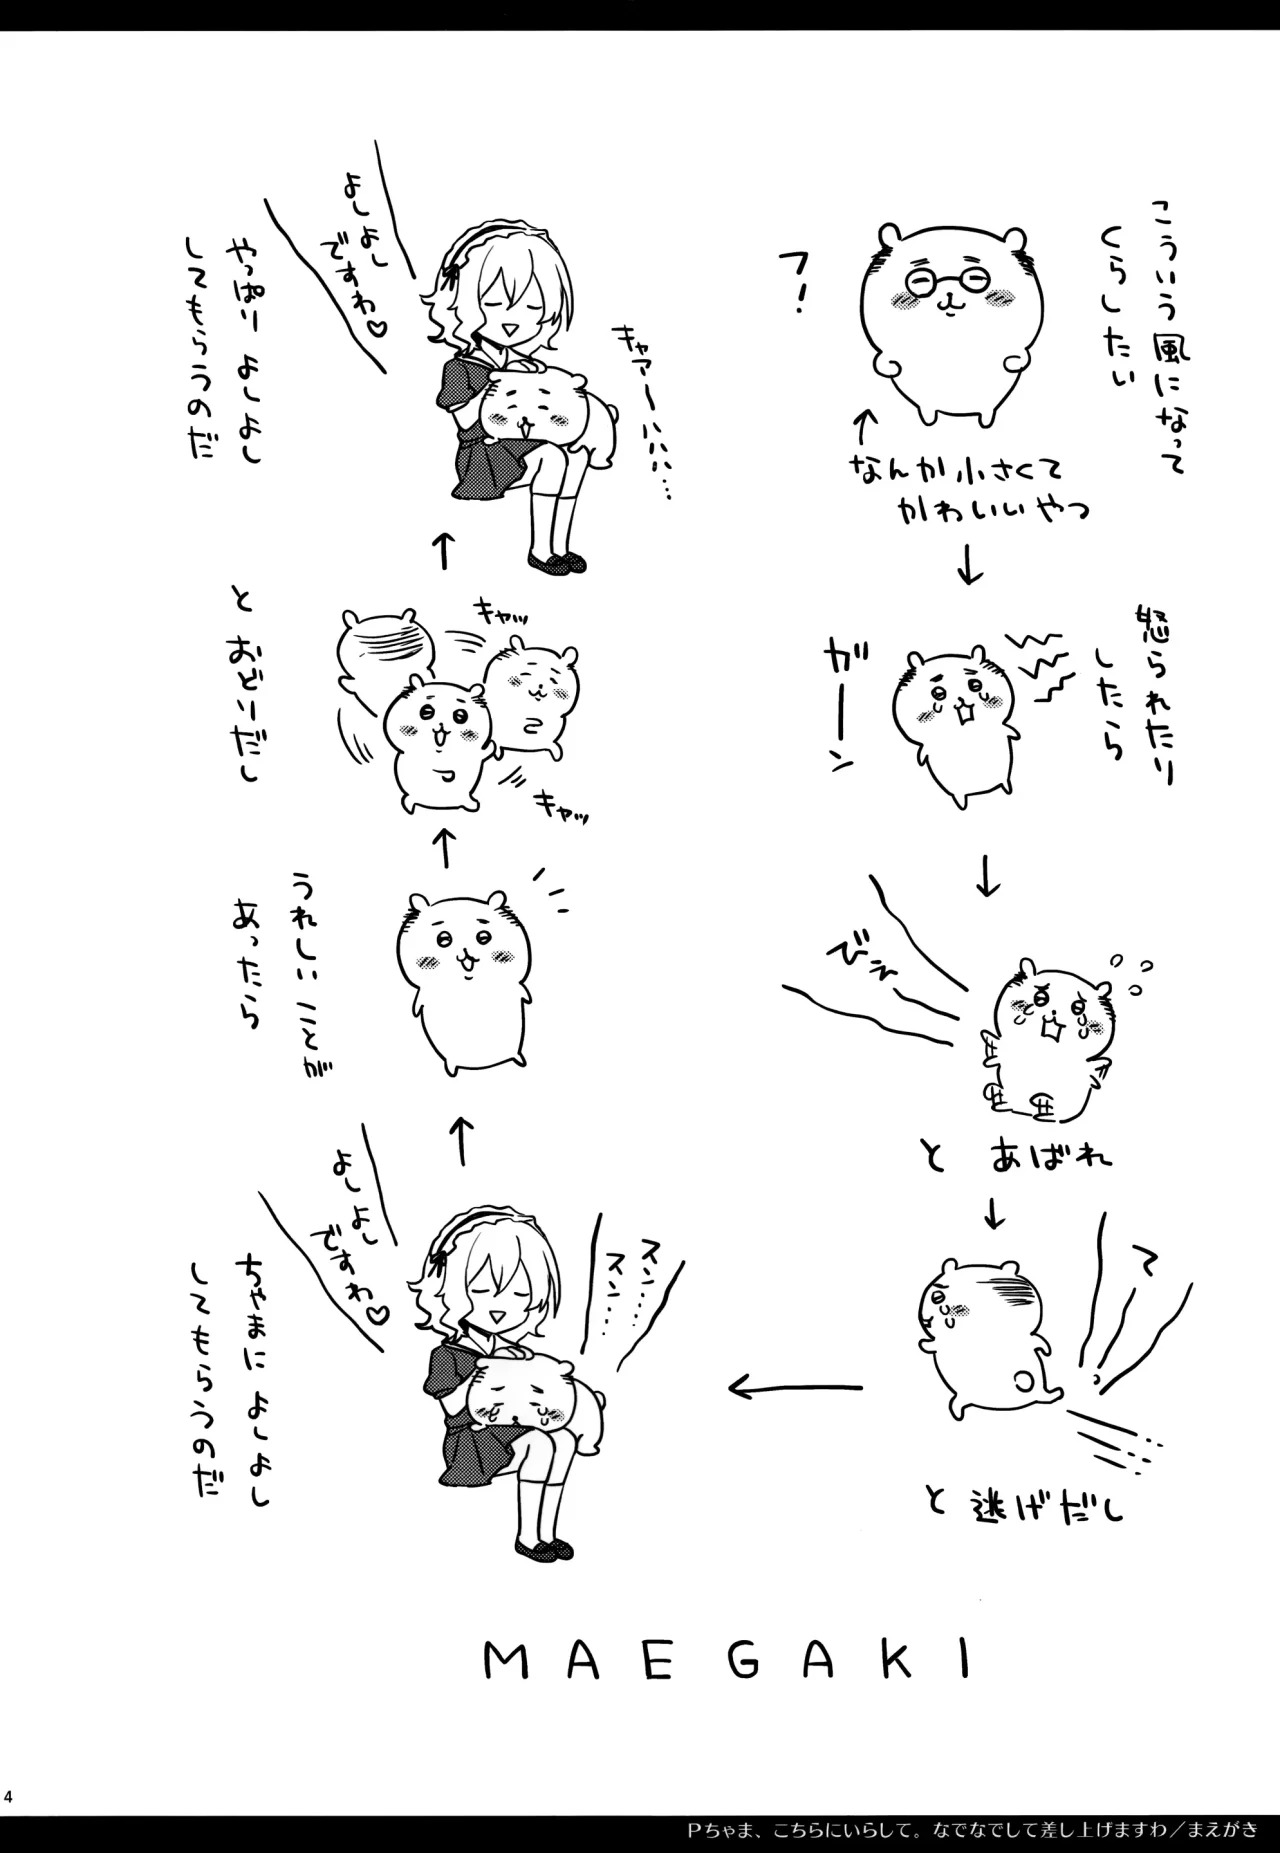 こういう風になって
くらしたい
フ!
↑
なんか小さくて
かわいいやつ
↓
怒られたり
したら
ガーン
↓
びえ
と あばれ
↓
て
と 逃げだし
←
スン……
スン……
よしよし
ですわ♡
ちゃまに よしよし
してもらうのだ
↑
うれしい ことが
あったら
↑
キャッ
キャッ
と おどりだし
↑
キャアーハハハ…
よしよし
ですわ♡
やっぱり よしよし
してもらうのだ
MAEGAKI
4
Pちゃま、こちらにいらして。なでなでして差し上げますわ/まえがき